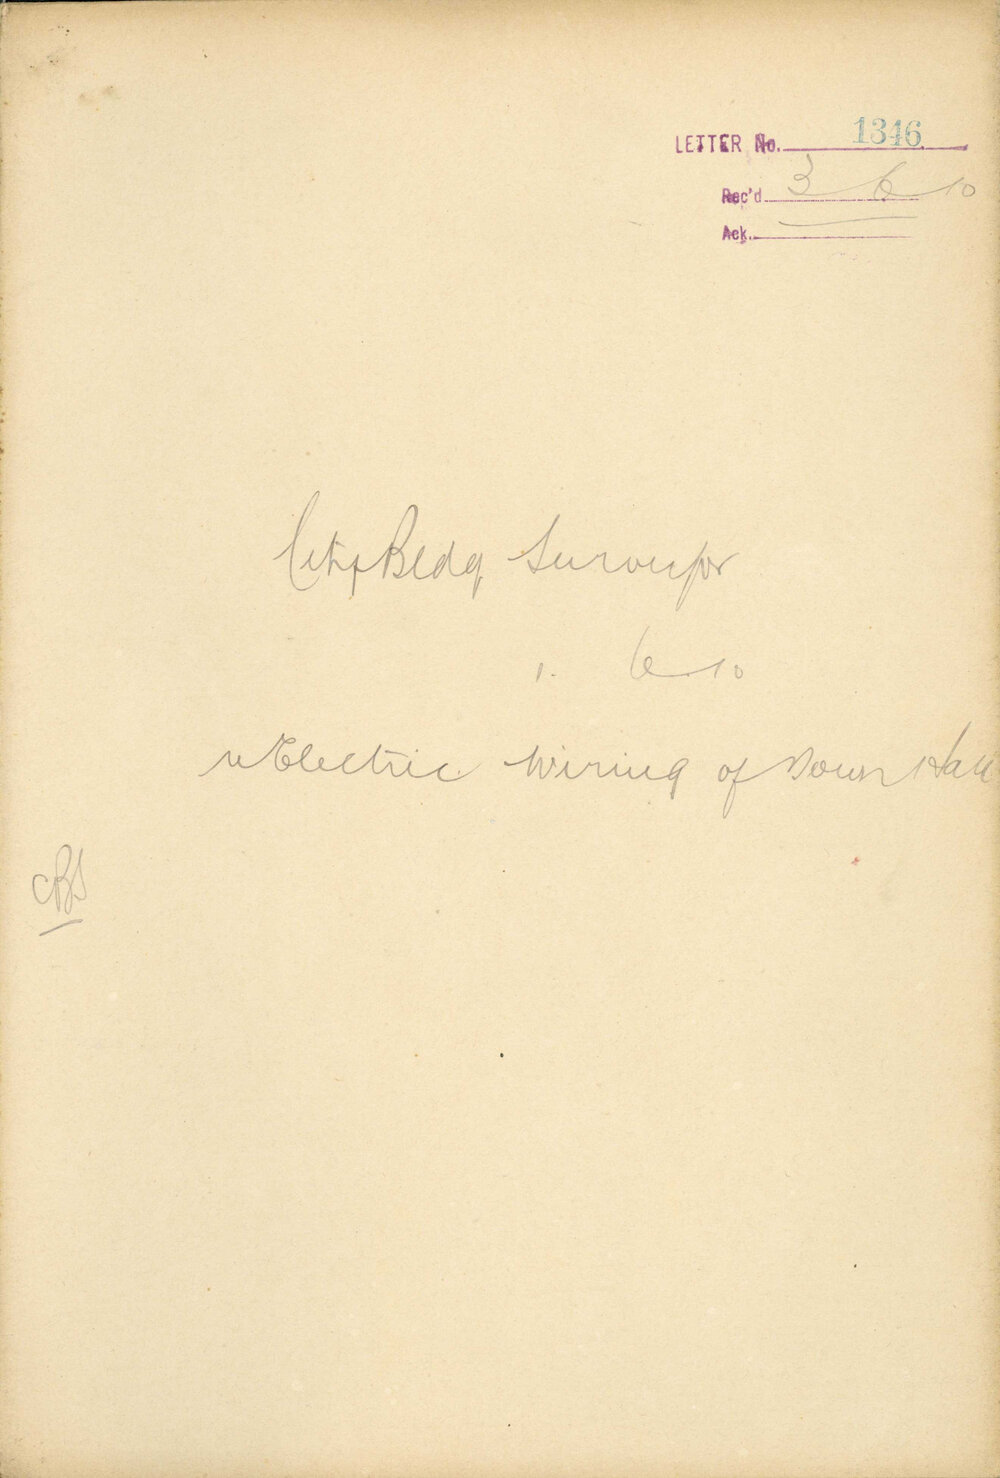 LETTER No. 1346
Rec'd 3 6 10
Ack.
City Bldg Surveyor
1. 6. 10
re Electric Wiring of Town Hall
CBS